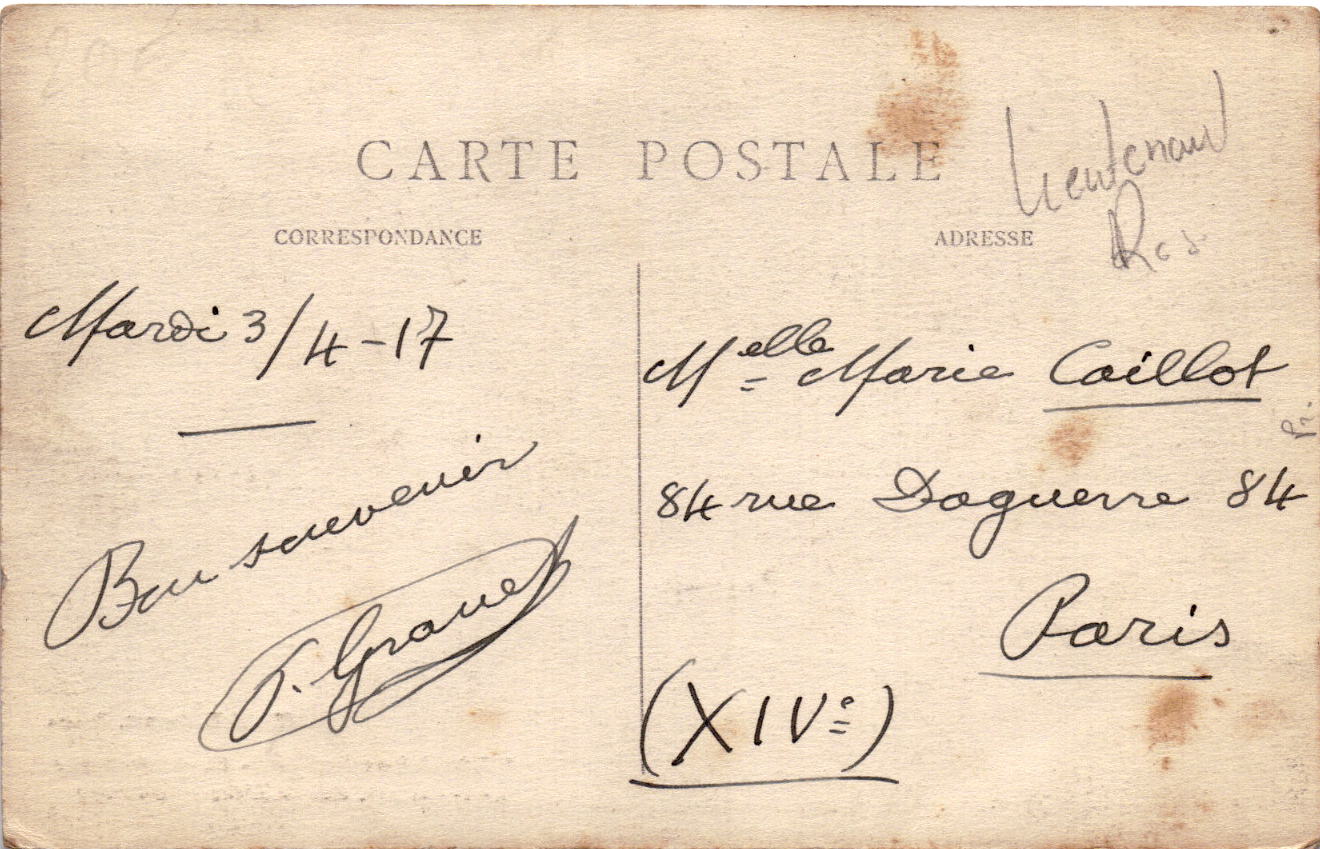 CARTE POSTALE
Lieutenant
CORRESPONDANCE
ADRESSE
Mardi 3/4-17
Bon souvenir
Melle Marie Caillot
84 rue Daguerre 84
Paris
(XIVe)